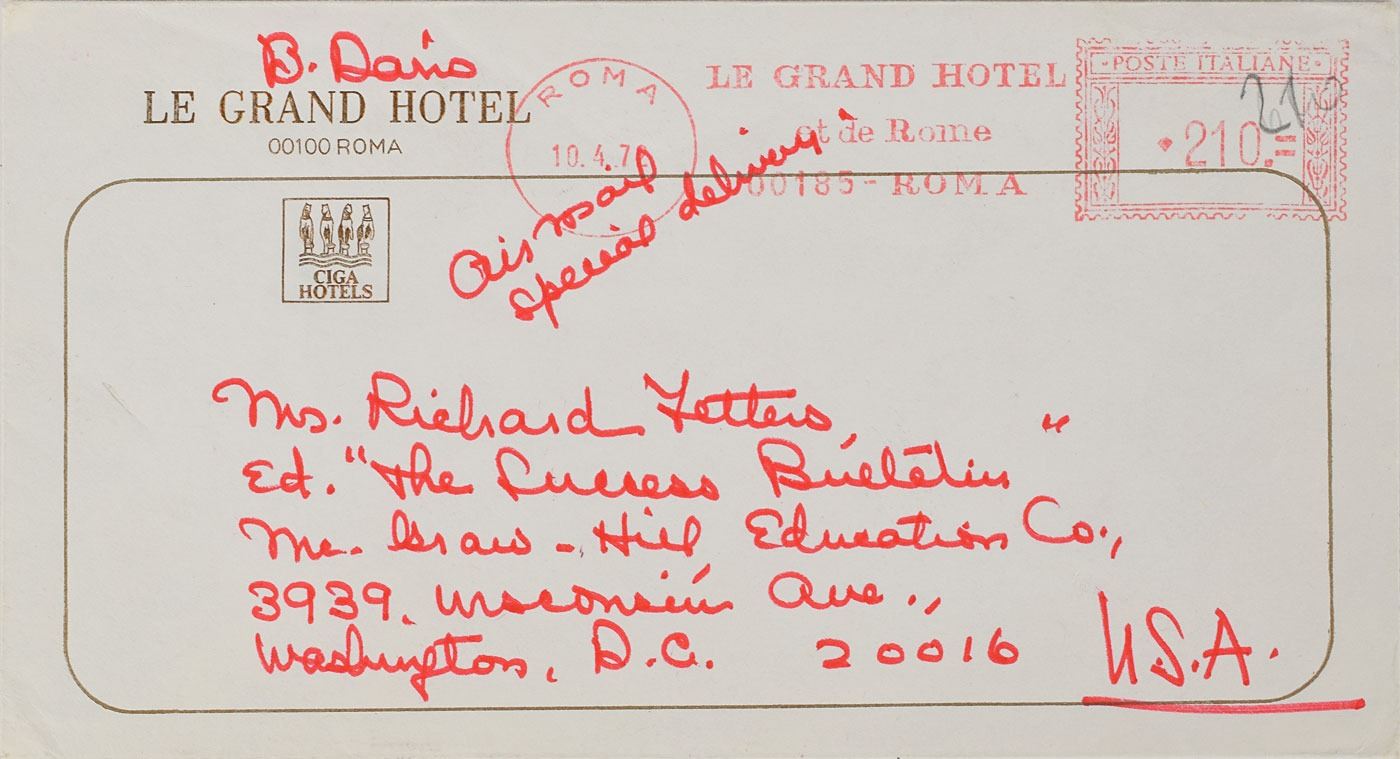 B. Davis
LE GRAND HOTEL
00100 ROMA
CIGA
HOTELS
ROMA
10.4.7
LE GRAND HOTEL
et de Rome
00185 - ROMA
POSTE ITALIANE
210.=
210
Air mail
special delivery
Mr. Richard Fetters,
Ed. "The Success Bulletin"
Mc. Graw - Hill Education Co.,
3939. Wisconsin Ave.,
Washington, D.C. 20016
U.S.A.